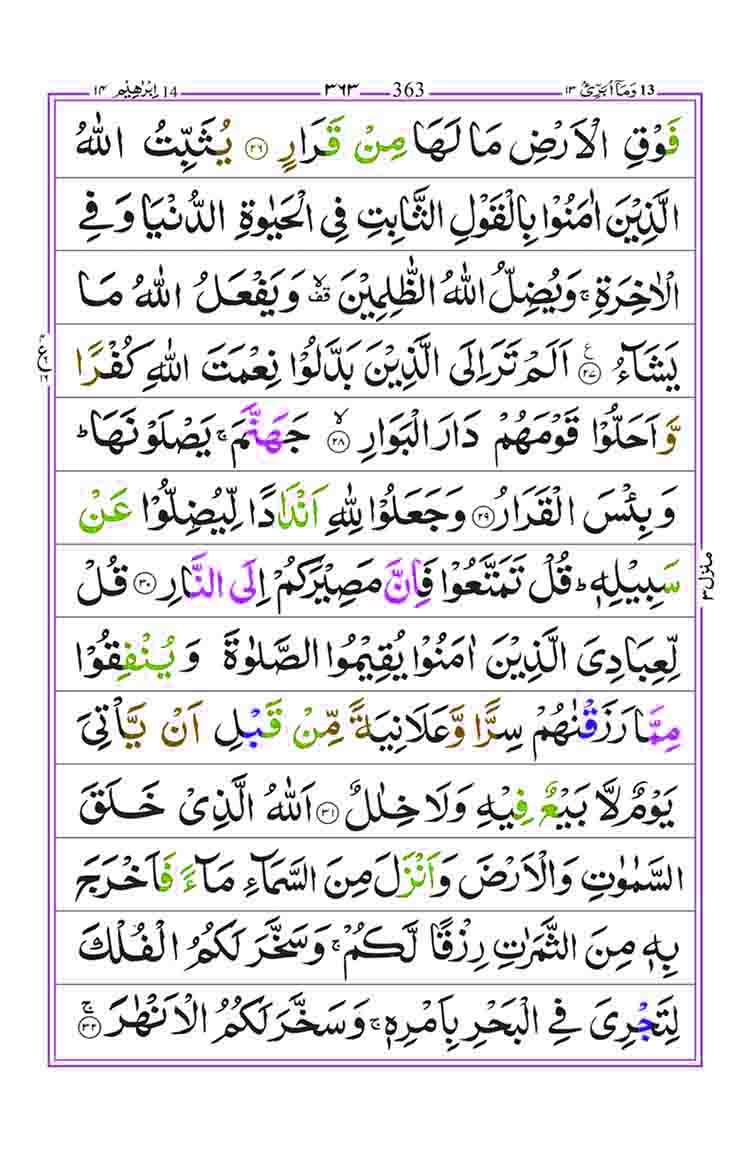 وَمَاۤ اُبَرِّئُ ١٣ 13 363 ٣٦٣ اِبْرٰهِيْم ١٤ 14
فَوْقِ الْاَرْضِ مَا لَهَا مِنْ قَرَارٍ ۝٢٦ يُثَبِّتُ اللّٰهُ
الَّذِيْنَ اٰمَنُوْا بِالْقَوْلِ الثَّابِتِ فِى الْحَيٰوةِ الدُّنْيَا وَفِى
الْاٰخِرَةِ ۚ وَيُضِلُّ اللّٰهُ الظّٰلِمِيْنَ ۙ قف وَيَفْعَلُ اللّٰهُ مَا
يَشَآءُ ۝٢٧ ع اَلَمْ تَرَ اِلَى الَّذِيْنَ بَدَّلُوْا نِعْمَتَ اللّٰهِ كُفْرًا
وَّاَحَلُّوْا قَوْمَهُمْ دَارَ الْبَوَارِ ۝٢٨ ۙ جَهَنَّمَ ۚ يَصْلَوْنَهَا ؕ
وَبِئْسَ الْقَرَارُ ۝٢٩ وَجَعَلُوْا لِلّٰهِ اَنْدَادًا لِّيُضِلُّوْا عَنْ
سَبِيْلِهٖ ؕ قُلْ تَمَتَّعُوْا فَاِنَّ مَصِيْرَكُمْ اِلَى النَّارِ ۝٣٠ قُلْ
لِّعِبَادِىَ الَّذِيْنَ اٰمَنُوْا يُقِيْمُوا الصَّلٰوةَ وَيُنْفِقُوْا
مِمَّا رَزَقْنٰهُمْ سِرًّا وَّعَلَانِيَةً مِّنْ قَبْلِ اَنْ يَّاْتِىَ
يَوْمٌ لَّا بَيْعٌ فِيْهِ وَلَا خِلٰلٌ ۝٣١ اَللّٰهُ الَّذِىْ خَلَقَ
السَّمٰوٰتِ وَالْاَرْضَ وَاَنْزَلَ مِنَ السَّمَآءِ مَآءً فَاَخْرَجَ
بِهٖ مِنَ الثَّمَرٰتِ رِزْقًا لَّكُمْ ۚ وَسَخَّرَ لَكُمُ الْفُلْكَ
لِتَجْرِىَ فِى الْبَحْرِ بِاَمْرِهٖ ۚ وَسَخَّرَ لَكُمُ الْاَنْهٰرَ ۝٣٢ ۚ
ع
منزل ٣